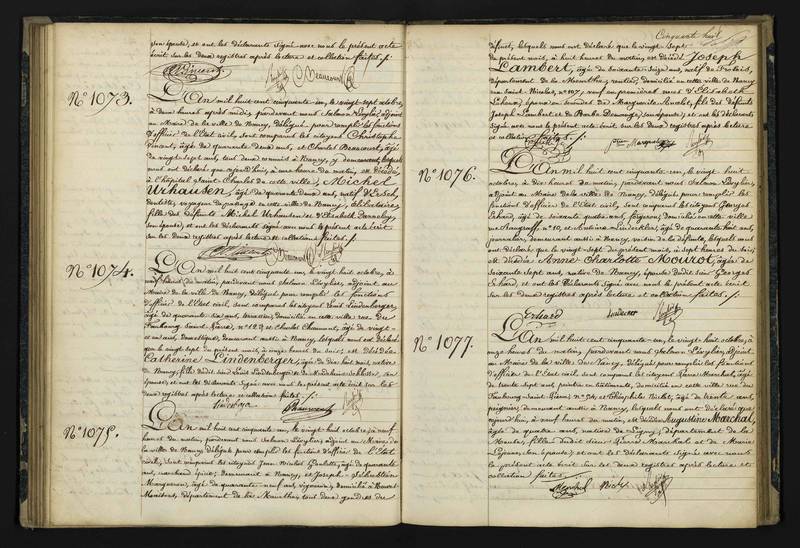 son épouse, et ont les déclarants signé avec nous le présent acte
écrit sur les deux registres après lecture et collation faites. /.
C. Beaucourt
N° 1073.
L'An mil huit cent cinquante-un, le vingt-sept octobre,
à deux heures après midi, pardevant nous Salmon Lévylier, adjoint
au Maire de la ville de Nancy, délégué pour remplir les fonctions
d'officier de l'Etat civil, sont comparus les citoyens Christophe
Vincent, âgé de quarante-deux ans, et Charles Beaucourt, âgé
de vingt-sept ans, tous deux commis à Nancy, y demeurant, lesquels
nous ont déclaré que aujourd'hui, à une heure du matin, est décédé
à l'hôpital Saint Charles de cette ville, Michel
Urhausen, âgé de quarante-deux ans, natif d'Esch,
de passage en cette ville de Nancy, célibataire,
fils des défunts Michel Urhausen et d'Elisabeth
son épouse, et ont les déclarants signé avec nous le présent acte écrit
sur les deux registres après lecture et collation faites. /.
Vincent C. Beaucourt
N° 1074.
L'An mil huit cent cinquante-un, le vingt-huit octobre, à
neuf heures du matin, pardevant nous Salmon Lévylier, adjoint au
Maire de la ville de Nancy, délégué pour remplir les fonctions
d'officier de l'Etat civil, sont comparus les citoyens Louis Lindenberger,
âgé de quarante-six ans, terrassier, domicilié en cette ville rue du
Faubourg Saint-Pierre, n° 129, et Charles Chaumont, âgé de vingt-
et-un ans, domestique, demeurant aussi à Nancy, lesquels nous ont déclaré
que le vingt-sept du présent mois, à onze heures du soir, est décédée
Catherine Lindenberger, âgée de dix-huit mois, native
de Nancy, fille dudit sieur Louis Lindenberger et de Madeleine son
épouse; et ont les déclarants signé avec nous le présent acte écrit sur les
deux registres après lecture et collation faites. /.
Chaumont
N° 1075.
L'An mil huit cent cinquante-un, le vingt-huit octobre, à neuf
heures du matin, pardevant nous Salmon Lévylier, adjoint au Maire de
la ville de Nancy, délégué pour remplir les fonctions d'officier de l'Etat
civil, sont comparus les citoyens Jean Nicolas, âgé de quarante
ans, marchand épicier, demeurant à Nancy, et Joseph Sébastien
Marqueron, âgé de quarante-neuf ans, vigneron, domicilié à
département de la Meurthe, tous deux gendres du
Cinquante huit
défunt, lesquels nous ont déclaré que le vingt-sept
du présent mois, à huit heures du matin, est décédé Joseph
Lambert, âgé de soixante-seize ans, natif de Frolois,
département de la Meurthe, rentier, domicilié en cette ville de Nancy
rue Saint-Nicolas, n° 107, veuf en premières noces d'Elisabeth
époux en secondes de Marguerite, fils des défunts
Joseph Lambert et de Barbe, son épouse; et ont les déclarants
signé avec nous le présent acte écrit sur les deux registres après lecture
et collation faites. /.
N° 1076.
L'An mil huit cent cinquante-un, le vingt-huit
octobre, à dix heures du matin, pardevant nous Salmon Lévylier,
adjoint au Maire de la ville de Nancy, délégué pour remplir les
fonctions d'officier de l'Etat civil, sont comparus les citoyens Georges
Erhard, âgé de soixante-quatre ans, domicilié en cette ville
rue n° 10, et Antoine, âgé de quarante-huit ans,
journalier, demeurant aussi à Nancy, voisin de la défunte, lesquels nous
ont déclaré que le vingt-sept du présent mois, à sept heures du soir,
est décédée Anne Charlotte Mourot, âgée de
soixante-sept ans, native de Nancy, épouse dudit sieur Georges
Erhard, et ont les déclarants signé avec nous le présent acte écrit
sur les deux registres après lecture et collation faites. /.
Erhard
N° 1077.
L'An mil huit cent cinquante-un, le vingt-huit octobre, à
onze heures du matin, pardevant nous Salmon Lévylier, adjoint
au Maire de la ville de Nancy, délégué pour remplir les fonctions
d'officier de l'Etat civil, sont comparus les citoyens Pierre Marchal, âgé
de trente-sept ans, peintre en bâtiments, domicilié en cette ville rue du
Faubourg Saint-Pierre, n° 54, et Théophile, âgé de trente ans,
peignier, demeurant aussi à Nancy, lesquels nous ont déclaré que
aujourd'hui, à neuf heures du matin, est décédée Augustine Marchal,
âgée de quatre ans, native de, département de la
Meurthe, fille dudit sieur Pierre Marchal et de Marie
Lejeune, son épouse; et ont les déclarants signé avec nous
le présent acte écrit sur les deux registres après lecture et
collation faites. /.
Marchal